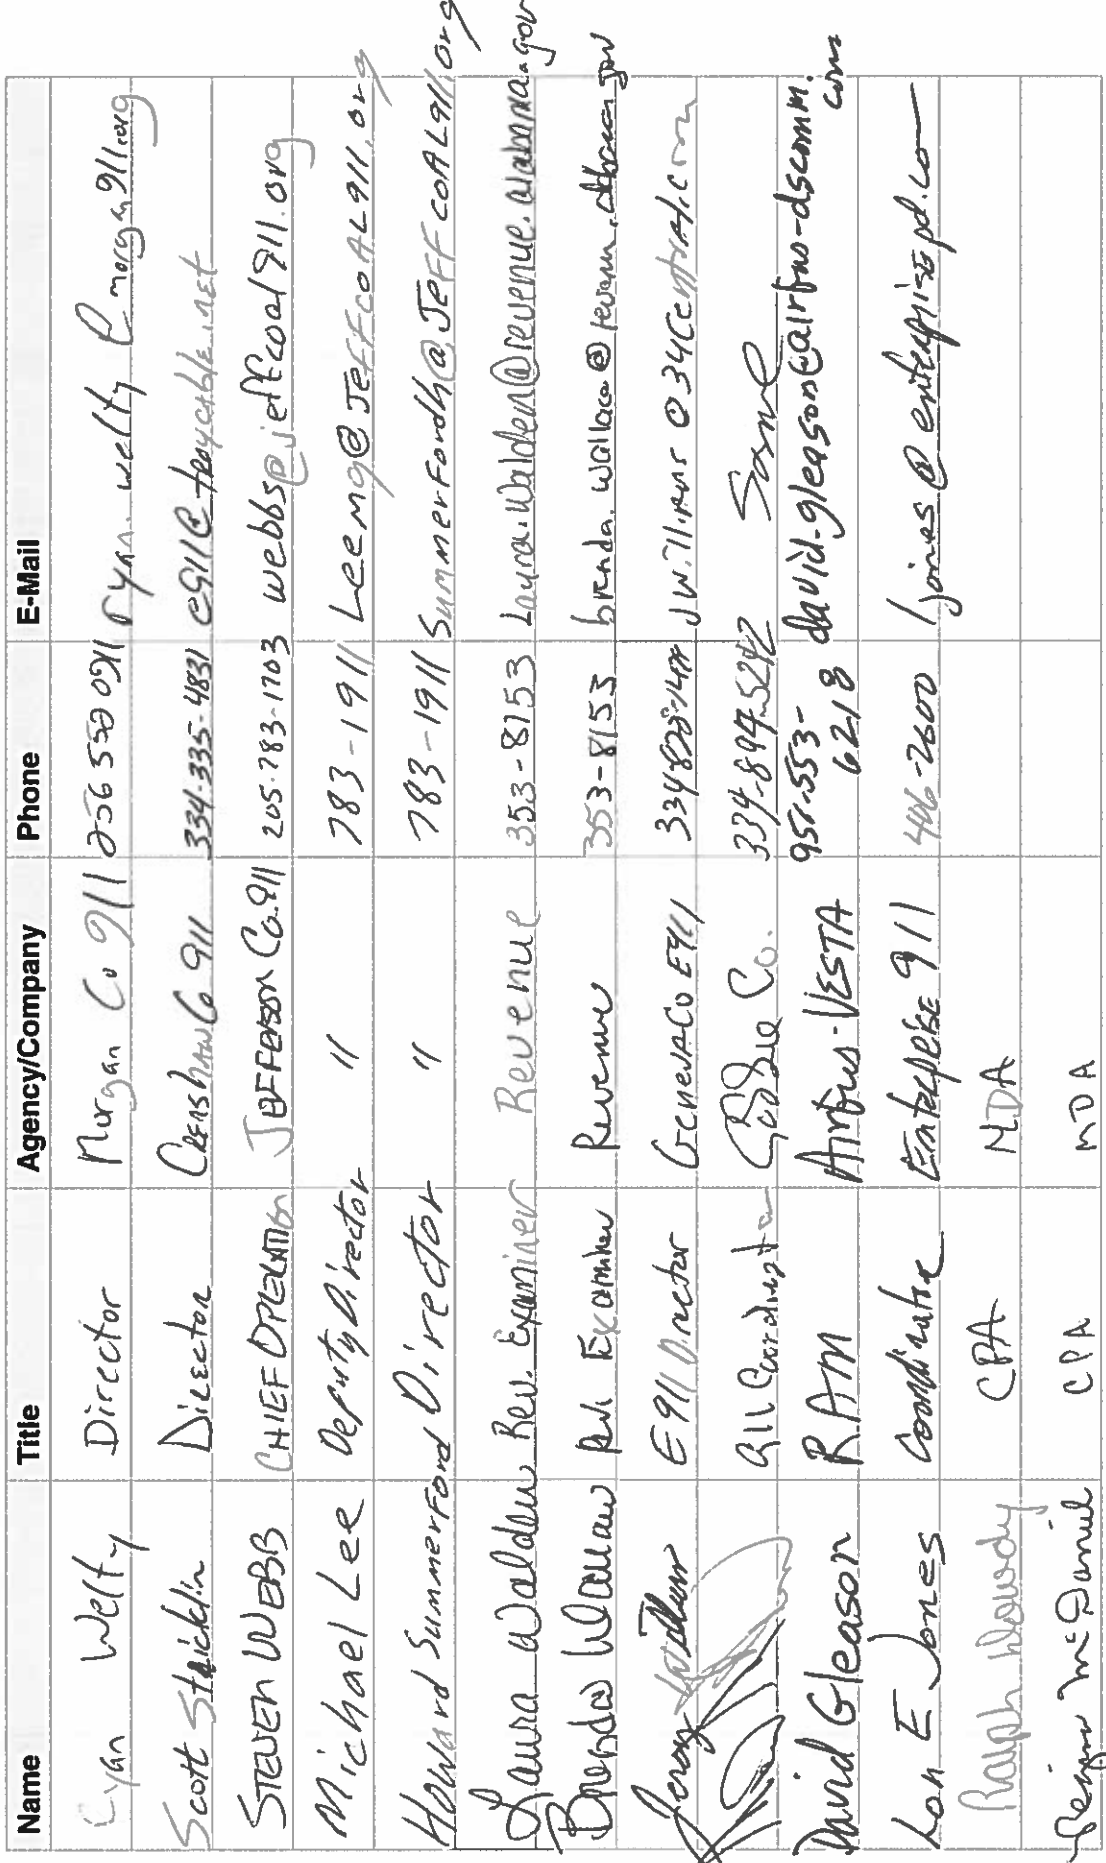 Name Title Agency/Company Phone E-Mail
Ryan Welty Director Morgan Co 911 256 552 0911 ryan.welty@morgan911.org
Scott Stricklin Director Crenshaw Co 911 334-335-4831 e911@troycable.net
STEVEN WEBB CHIEF OPERATION JEFFERSON Co. 911 205-783-1703 webbs@jeffcoal911.org
Michael Lee Deputy Director " 783-1911 Leemg@JeffCoAL911.org
Howard Summerford Director " 783-1911 Summerfordh@JeffCoAL911.org
Laura Walden Rev. Examiner Revenue 353-8153 Laura.Walden@revenue.alabama.gov
Brenda Wallace Examiner Revenue 353-8153 brenda.wallace@revenue.alabama.gov
E 911 Director Geneva Co E911
911 Coordinator 334-894-5242 Same
David Gleason RAM Airbus-VESTA 951-553-6218 david.gleason@airbus-dscomm.com
Lon E Jones Coordinator Enterprise 911 406-2600 ljones@enterprisepd.co
Ralph CPA MDA
McDaniel CPA MDA